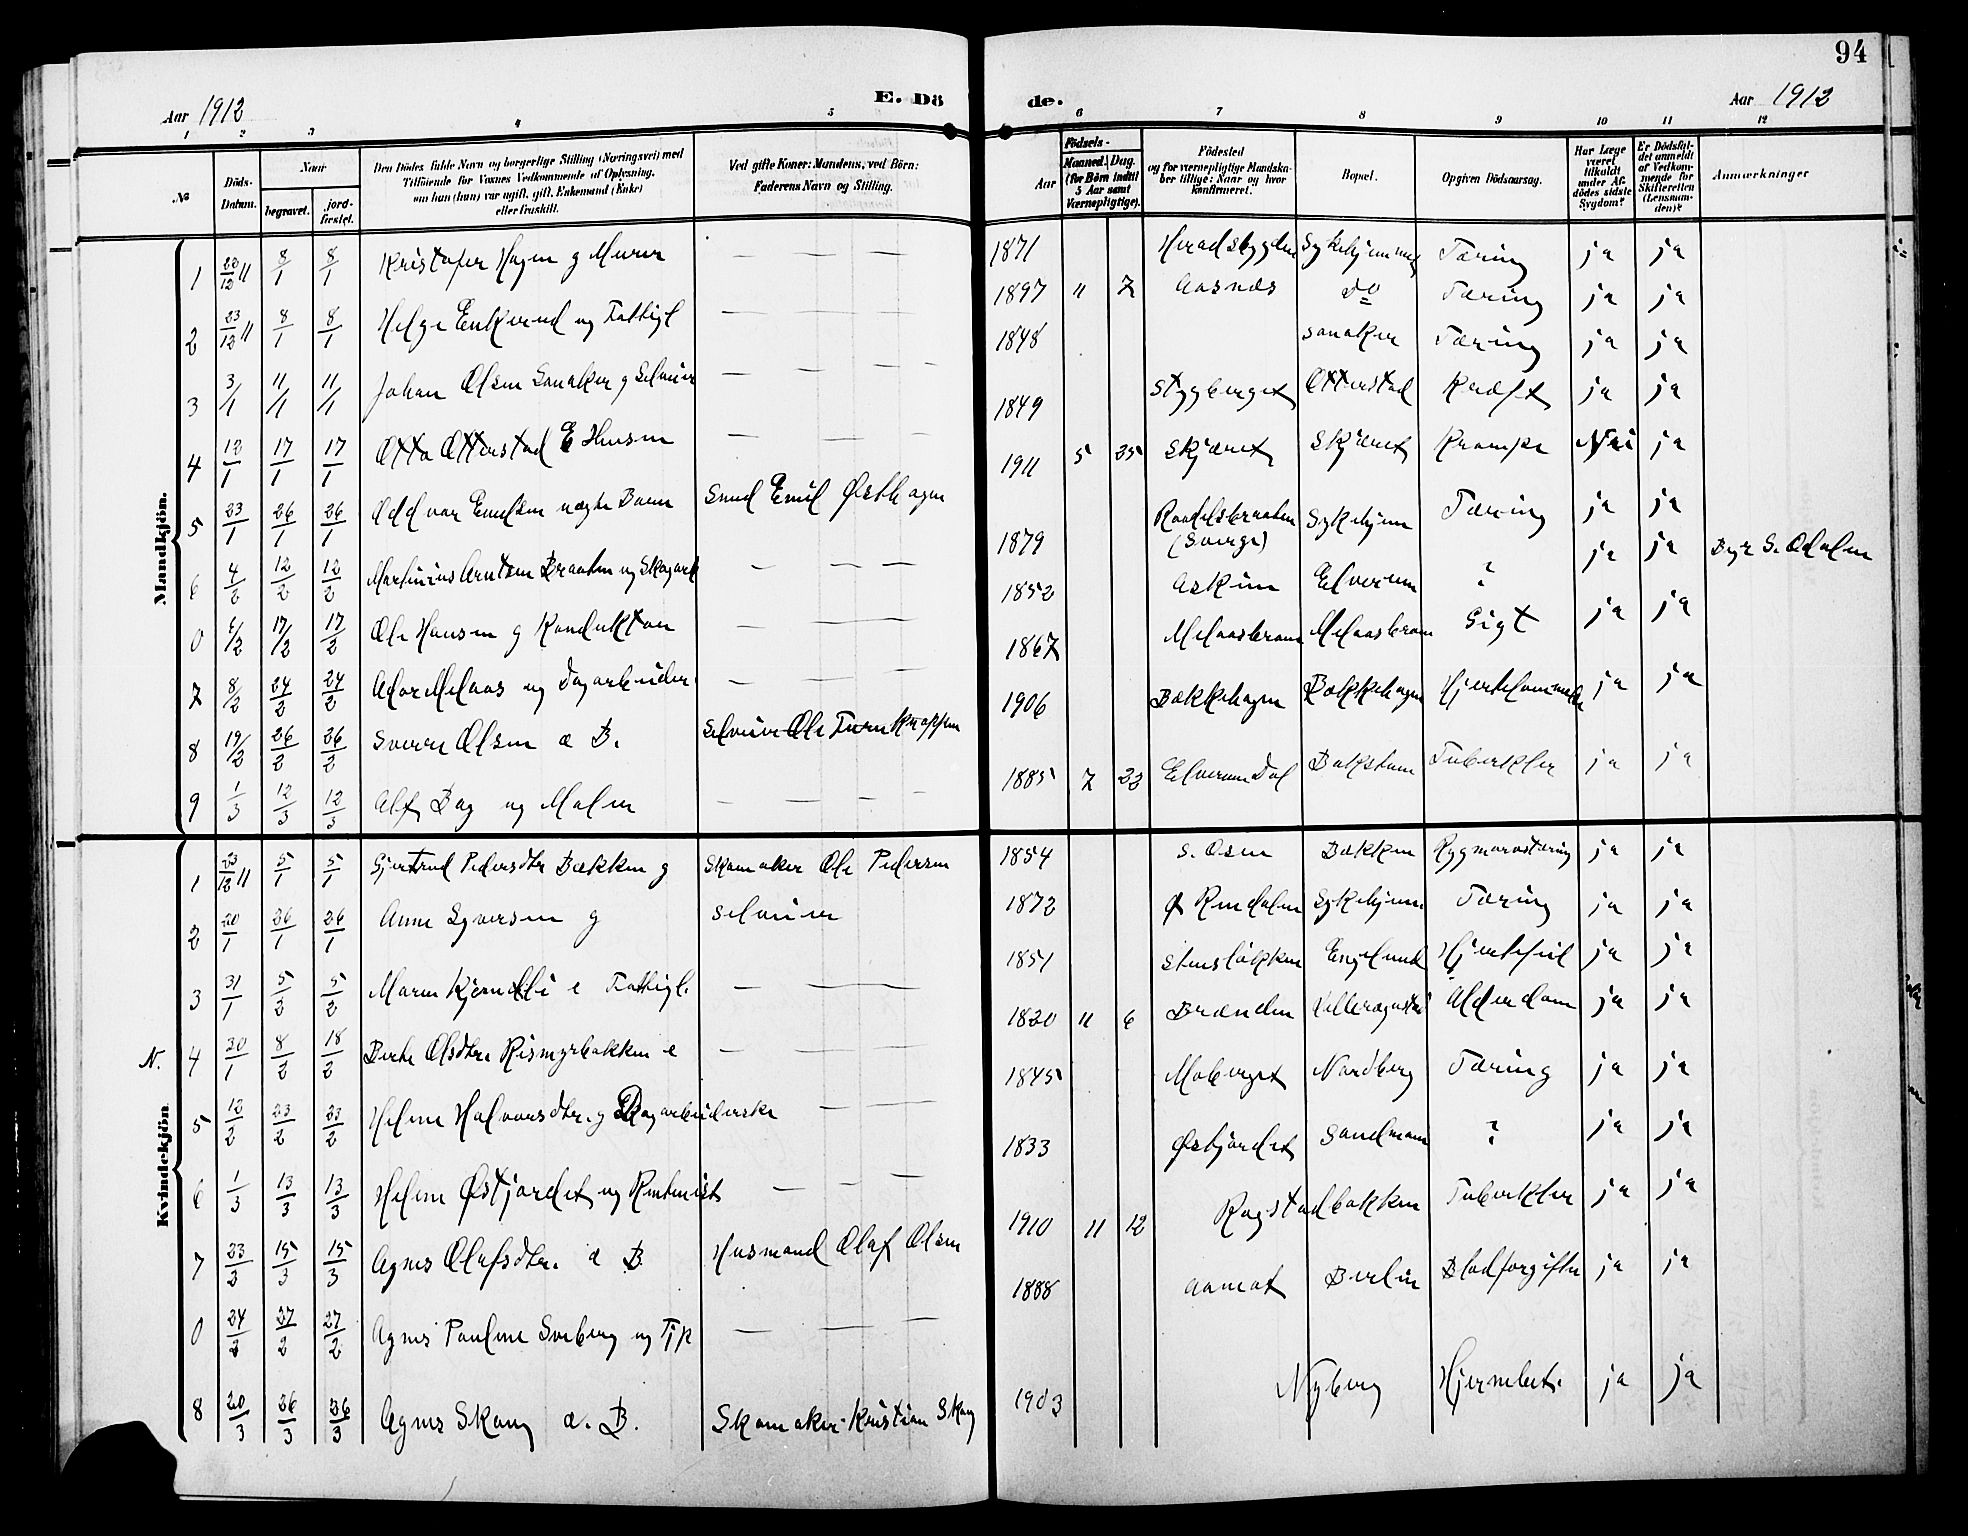 94
Aar 1912 E. Dö de. Aar 1912
1 2 3 4 5 6 7 8 9 10 11 12
№ Döds-Datum. Naar begravet. jord-fæstet. Den Dödes fulde Navn og borgerlige Stilling (Næringsvei) med Tilföiende for Voxnes Vedkommende af Oplysning, om han (hun) var ugift, gift, Enkemand (Enke) eller fraskilt. Ved gifte Koner: Mandens, ved Börn: Faderens Navn og Stilling. Aar Födsels- Maaned. Dag. (for Börn indtil 5 Aar samt Værnepligtige). Födested og for værnepligtige Mandska-ber tillige: Naar og hvor konfirmeret. Bopæl. Opgiven Dödsaarsag. Har Læge været tilkaldt under Af-dödes sidste Sygdom? Er Dödsfal-det anmeldt af Vedkom-mende for Skifteretten (Lensman-den)? Anmærkninger
Mandkjön.
1 20/12 11 8/1 8/1 Kristofer Hagen g Murer — — — 1871 Heradsbygden Sykehjemmet Tæring ja ja
2 23/12 11 8/1 8/1 Helge Enkerud ug Fattigl — — — 1897 11 7 Aasnæs do Tæring ja ja
3 3/1 11/1 11/1 Johan Olsen Sanaker g Selveier — — — 1848 Sanaker Tæring ja ja
4 12/1 17/1 17/1 Otto Otterstad E Husm — — — 1849 Stygberget Otterstad Kræft ja ja
5 23/1 26/1 26/1 Oddvar Emilsen uægte Barn Smed Emil Østhagen 1911 5 25 Skjæret Skjæret Krampe Nei ja
6 4/2 12/2 12/2 Martinius Arntsen Braaten ug Skogarb — — — 1879 (Sverge) Sykehjem Tæring ja ja
0 6/2 17/2 17/2 Ole Hansen g Konduktør — — — 1852 Askim Elverum ? ja ja Byr S. Odalen
7 8/2 24/2 24/2 Melaas ug Dagarbeider — — — 1867 Melaasbraaten Melaasbraaten Gigt ja ja
8 19/2 26/2 26/2 Sverre Olsen æ B. Selveier Ole Turn 1906 Bækkehagen Bækkehagen ja ja
9 1/3 12/3 12/3 Alf Bag ug Maler — — — — 1885 7 22 Elverum Dal Bakstam Tuberkler ja ja
Kvindekjön
1 23/12 11 5/1 5/1 Gjertrud Pedersdtr Bækken g Skomaker Ole Pedersen 1854 S. Osen Bækken Rygmarvstæring ja ja
2 20/1 26/1 26/1 Anne Syversen g Selveier 1872 Ø Rendalen Sykehjem Tæring ja ja
3 31/1 5/2 5/2 Maren Kjerndlli e Fattigl. — — — 1851 Stensløkken Englund Hjertefeil ja ja
N. 4 30/1 8/2 18/2 Berte Olsdtr. Rismyrbakken e — — — 1820 11 6 Brænden Alderdom ja ja
5 12/2 23/2 23/2 Helene Halvorsdtr. g Skogarbeiderske — — 1845 Moberget Nordberg Tæring ja ja
6 1/3 13/3 13/3 Helene Østjordet ug Rentenist — — — 1833 Østjordet Sandmoen ? ja ja
7 23/3 15/3 15/3 Agnes Olafsdtr. æ B Husmand Olaf Olsen 1910 11 12 Rogstadbakken Tuberkler ja ja
0 24/2 27/2 27/2 Agnes Pauline Soeberg ug Tjp — — — 1888 Aamot Berlin Blodforgiftn ja ja
8 20/3 26/3 26/3 Agnes Skaug æ. B. Skomaker Kristian Skaug 1903 Nyberg Hjernebet. ja ja